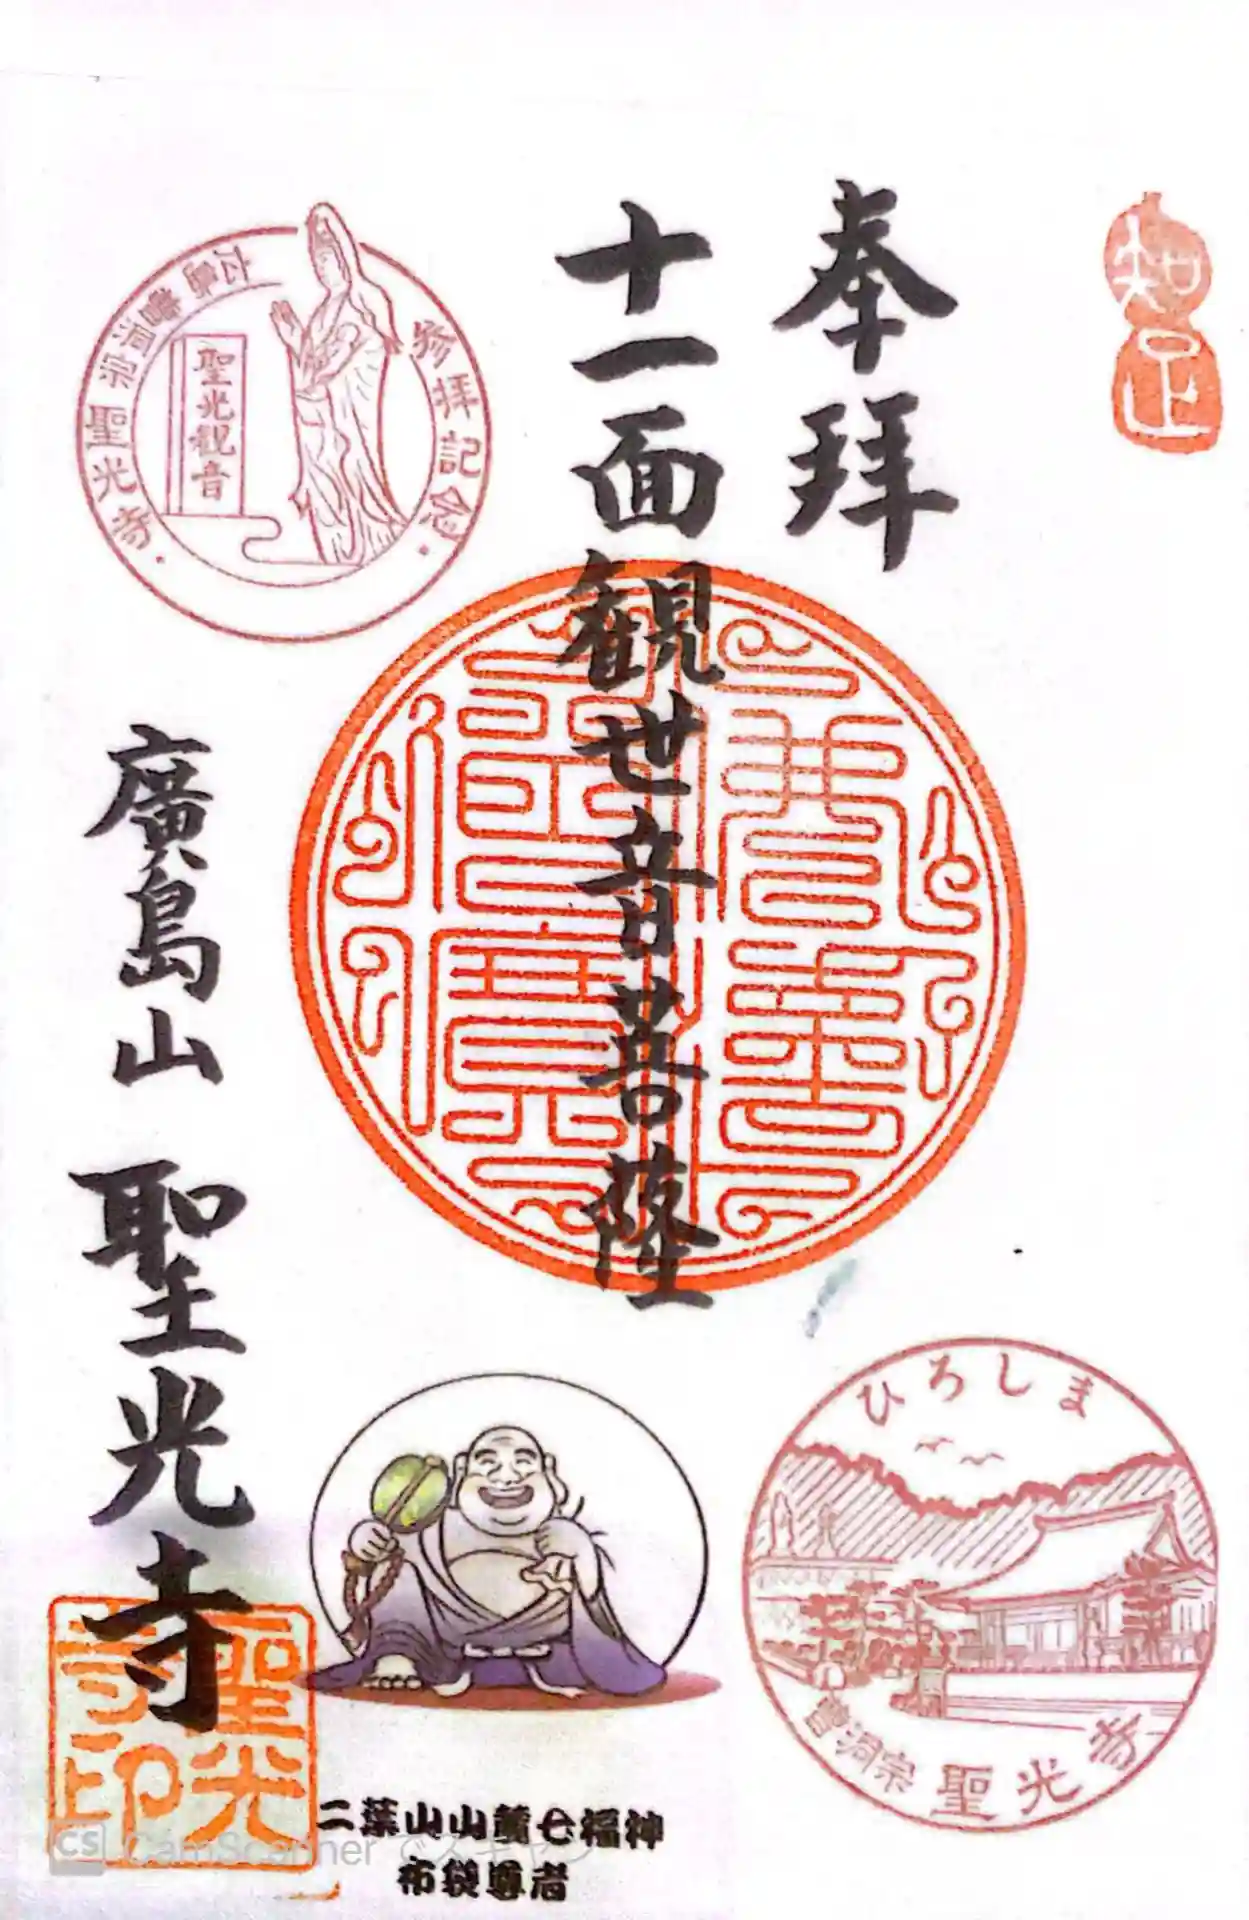 知足
奉拝
十一面観世音菩薩
廣島山 聖光寺
聖光寺印
聖光観音
曹洞宗 聖光寺
参拝記念
ひろしま
曹洞宗 聖光寺
二葉山山麓七福神
布袋尊者
CS CamScanner でスキャン